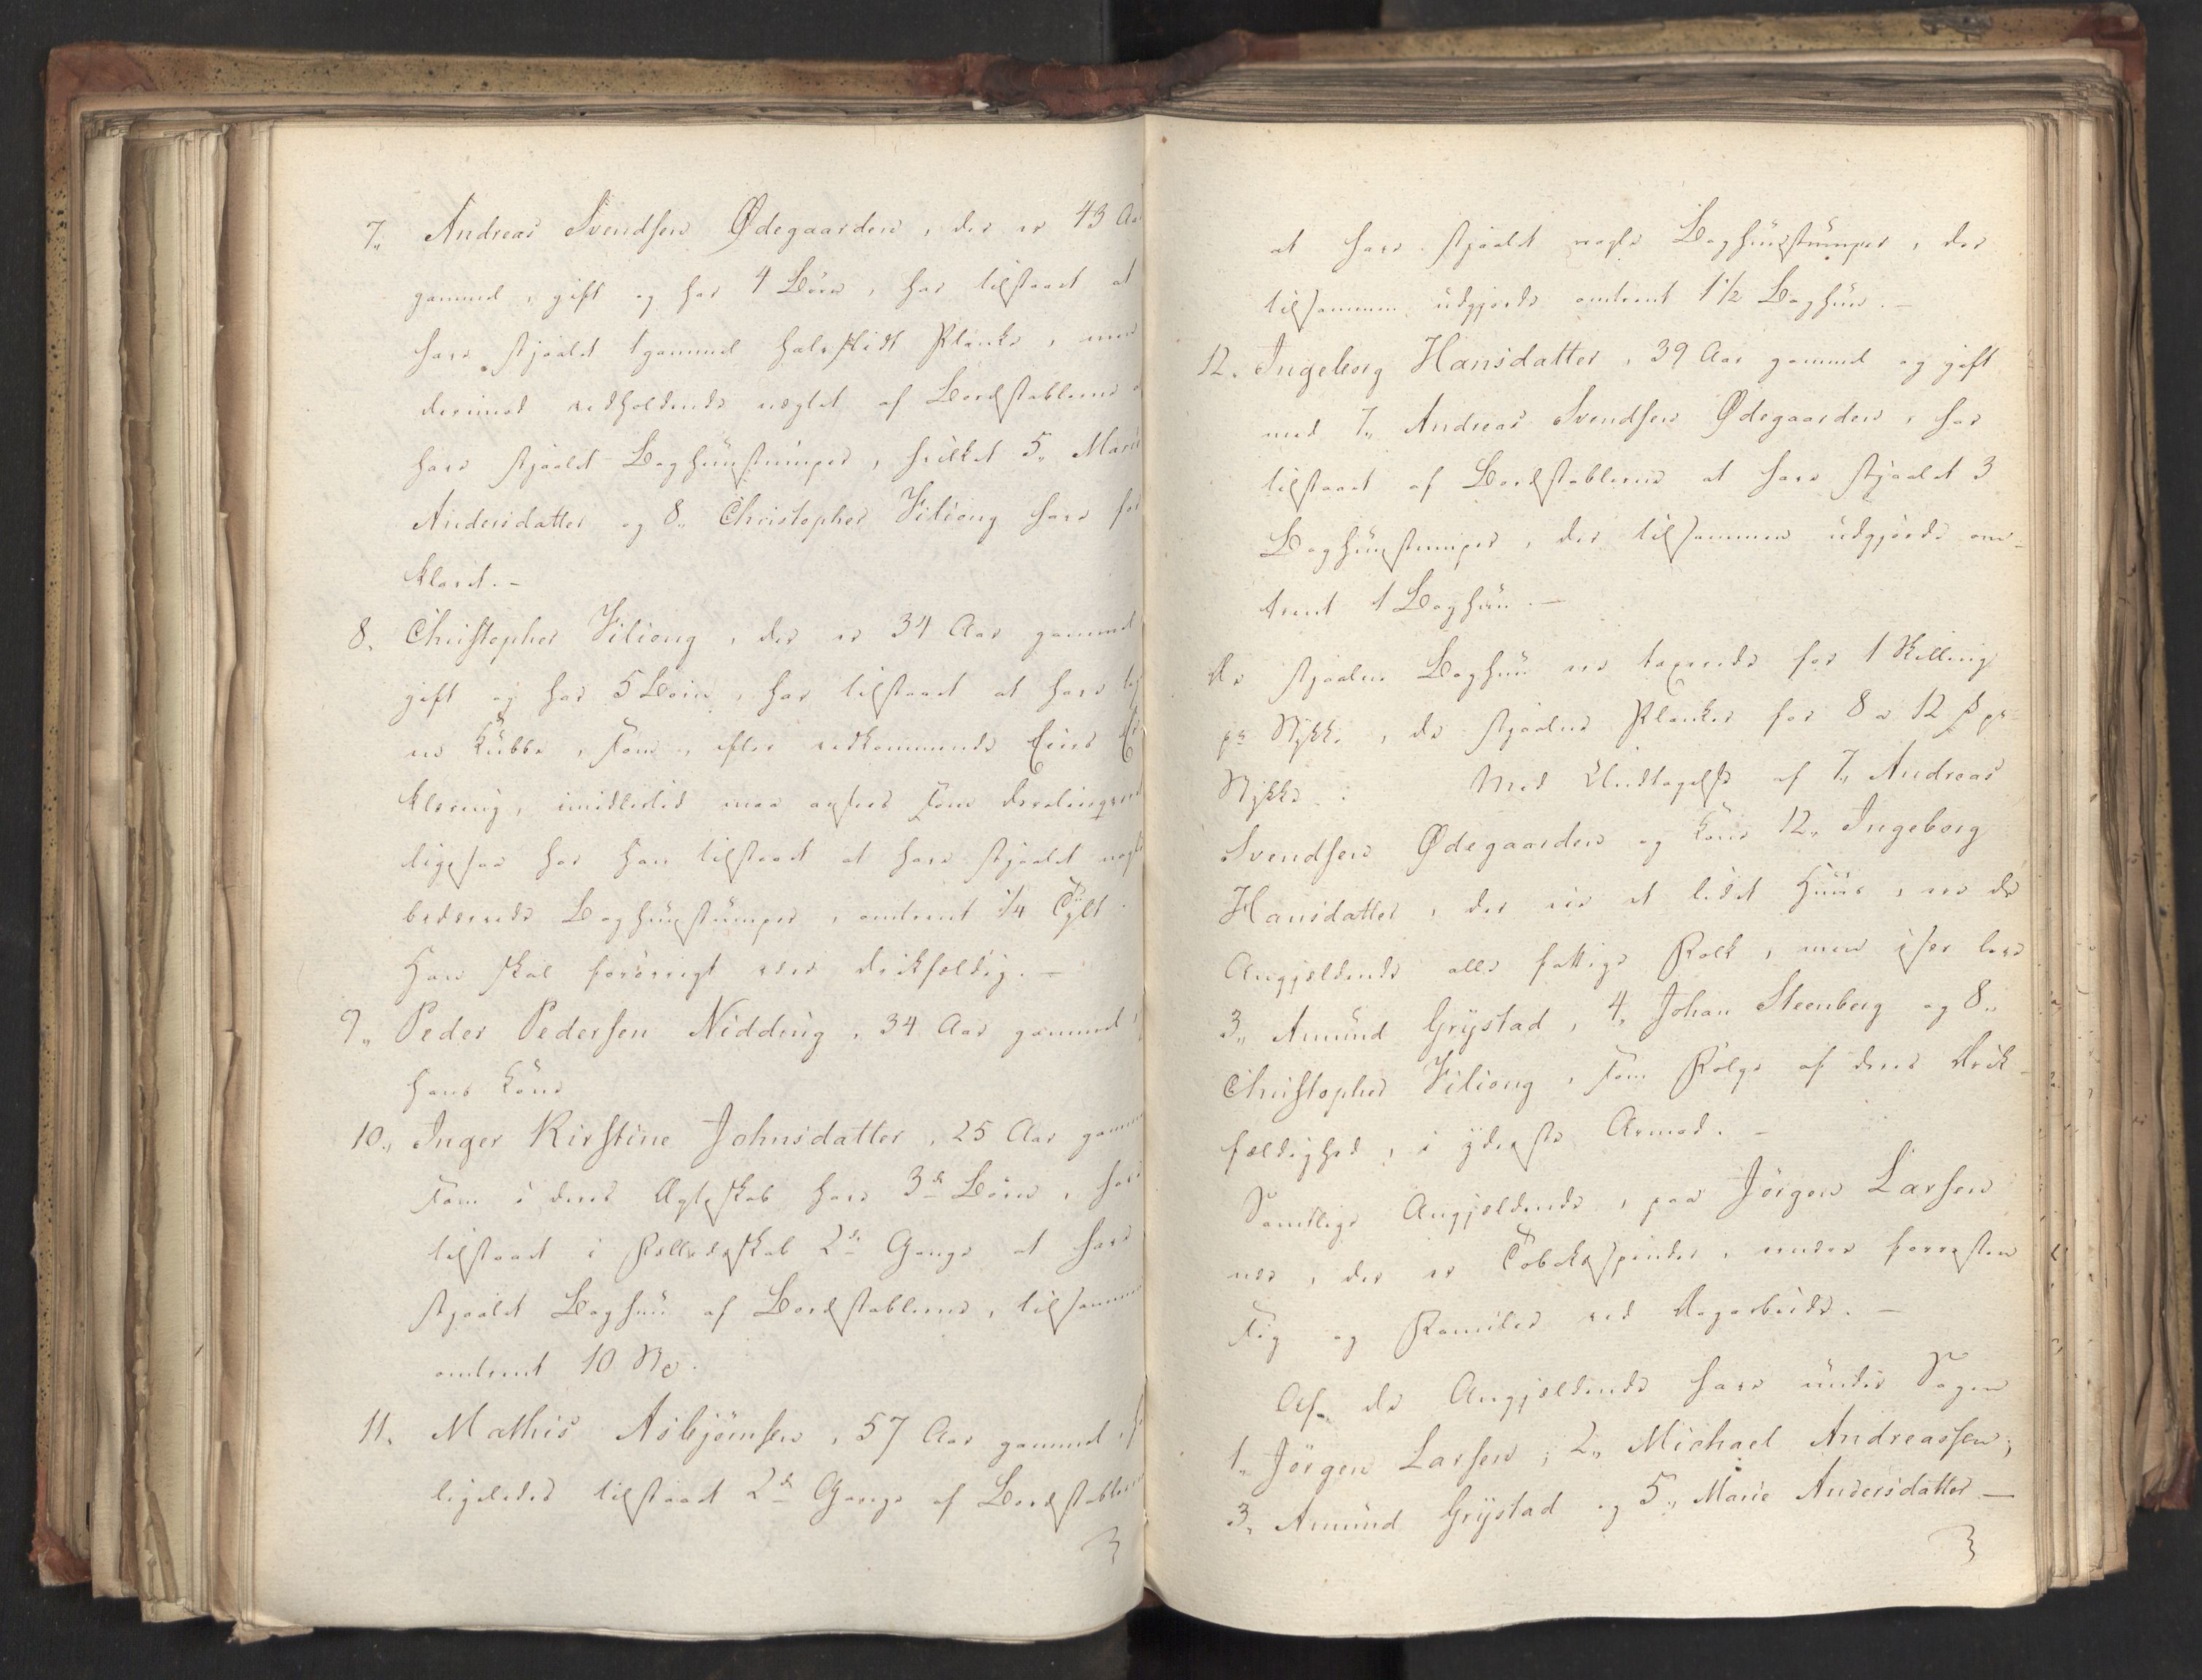 7. Andreas Svendsen Ødegaarden, der er 43 Aa
gammel, gift og har 4 Børn, har tilstaaet at
have stjaalet 1 gammel halvslidt Planke, men
derimod vedholdende negtet af Bordstablerne
have stjaalet Baghunstumper, hvilket 5. Marie
Andersdatter og 8. Christopher Filiong have for
klaret.-
8. Christopher Filiong, der er 34 Aar gammel
gift og har 5 Børn, har tilstaaet at have
en Kubbe, som, efter vedkommende Eiers
klæring, imidlertid maa ansees som
ligesaa har han tilstaaet at have stjaalet nogle
Baghunstumper, omtrent 1/4 Tylt.
Han skal forøvrigt være drikfældig.-
9. Peder Pedersen Nidding, 34 Aar gammel,
hans Kone
10. Inger Kirstine Johnsdatter, 25 Aar gamme
som i deres Ægteskab have 3de Børn, have
tilstaaet i Fælledsskab 2de Gange at have
stjaalet Baghun af Bordstablerne, tilsammen
omtrent 10 St.
11. Mathis Asbjørnsen, 57 Aar gammel,
ligeledes tilstaaet 2de Gange af Bordstablerne
at have stjaalet nogle Baghunstumper, der
tilsammen udgjorde omtrent 1 1/2 Baghun.-
12. Ingeborg Hansdatter, 39 Aar gammel og gift
med 7. Andreas Svendsen Ødegaarden, har
tilstaaet af Bordstablerne at have stjaalet 3
Baghunstumper, der tilsammen udgjorde om-
trent 1 Baghun.-
De stjaalne Baghun ere taxerede for 1 Skilling
pr Stykke, de stjaalne Planker for 8 a 12 ß pr
Stykke. Med Undtagelse af 7. Andreas
Svendsen Ødegaarden og Kone 12. Ingeborg
Hansdatter, der eie et lidet Huus, ere de
Angjældende alle fattige Folk, men især leve
3. Amund Grystad, 4. Johan Steenberg og 8.
Christopher Filiong, som Følge af deres Drik-
fældighed, i yderste Armod.-
Samtlige Angjældende, paa Jørgen Larsen
nær, der er Tobakspinder, ernære forresten
sig og Familie ved Dagarbeide.-
Af de Angjældende have under Sagen
1. Jørgen Larsen; 2. Michael Andreassen;
3. Amund Grystad og 5. Marie Andersdatter-